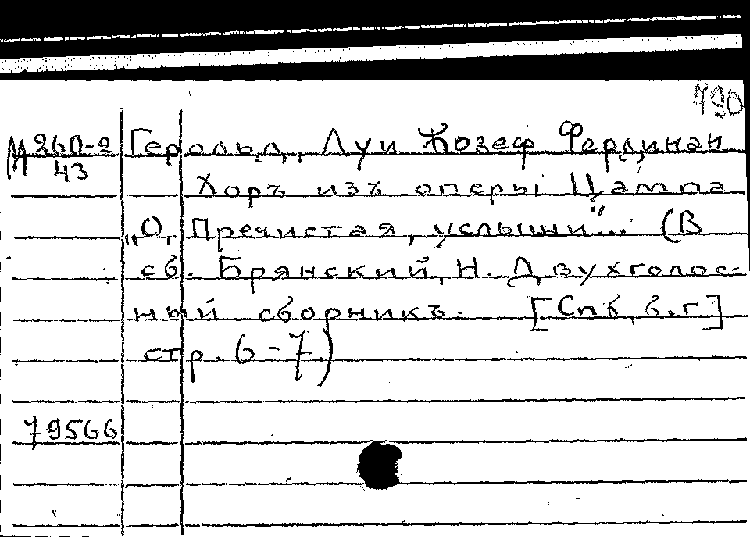 790
М 260-2 Герольд, Луи Жозеф Фердинан
43
Хоръ изъ оперы Цампа
„О, Пречистая, услыши"... (В
сб. Брянский, Н. Двухголос-
ный сборникъ. [Спб, б.г]
стр. 6-7)
79566